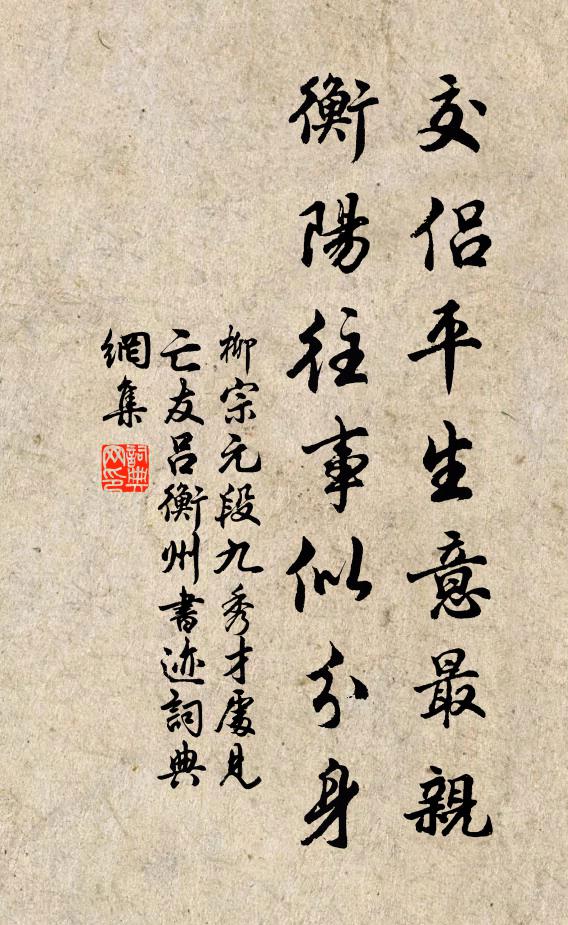 交侶平生意最親
衡陽往事似分身
柳宗元段九秀才處見
亡友呂衡州書迹詞典
網集
詞典
网印